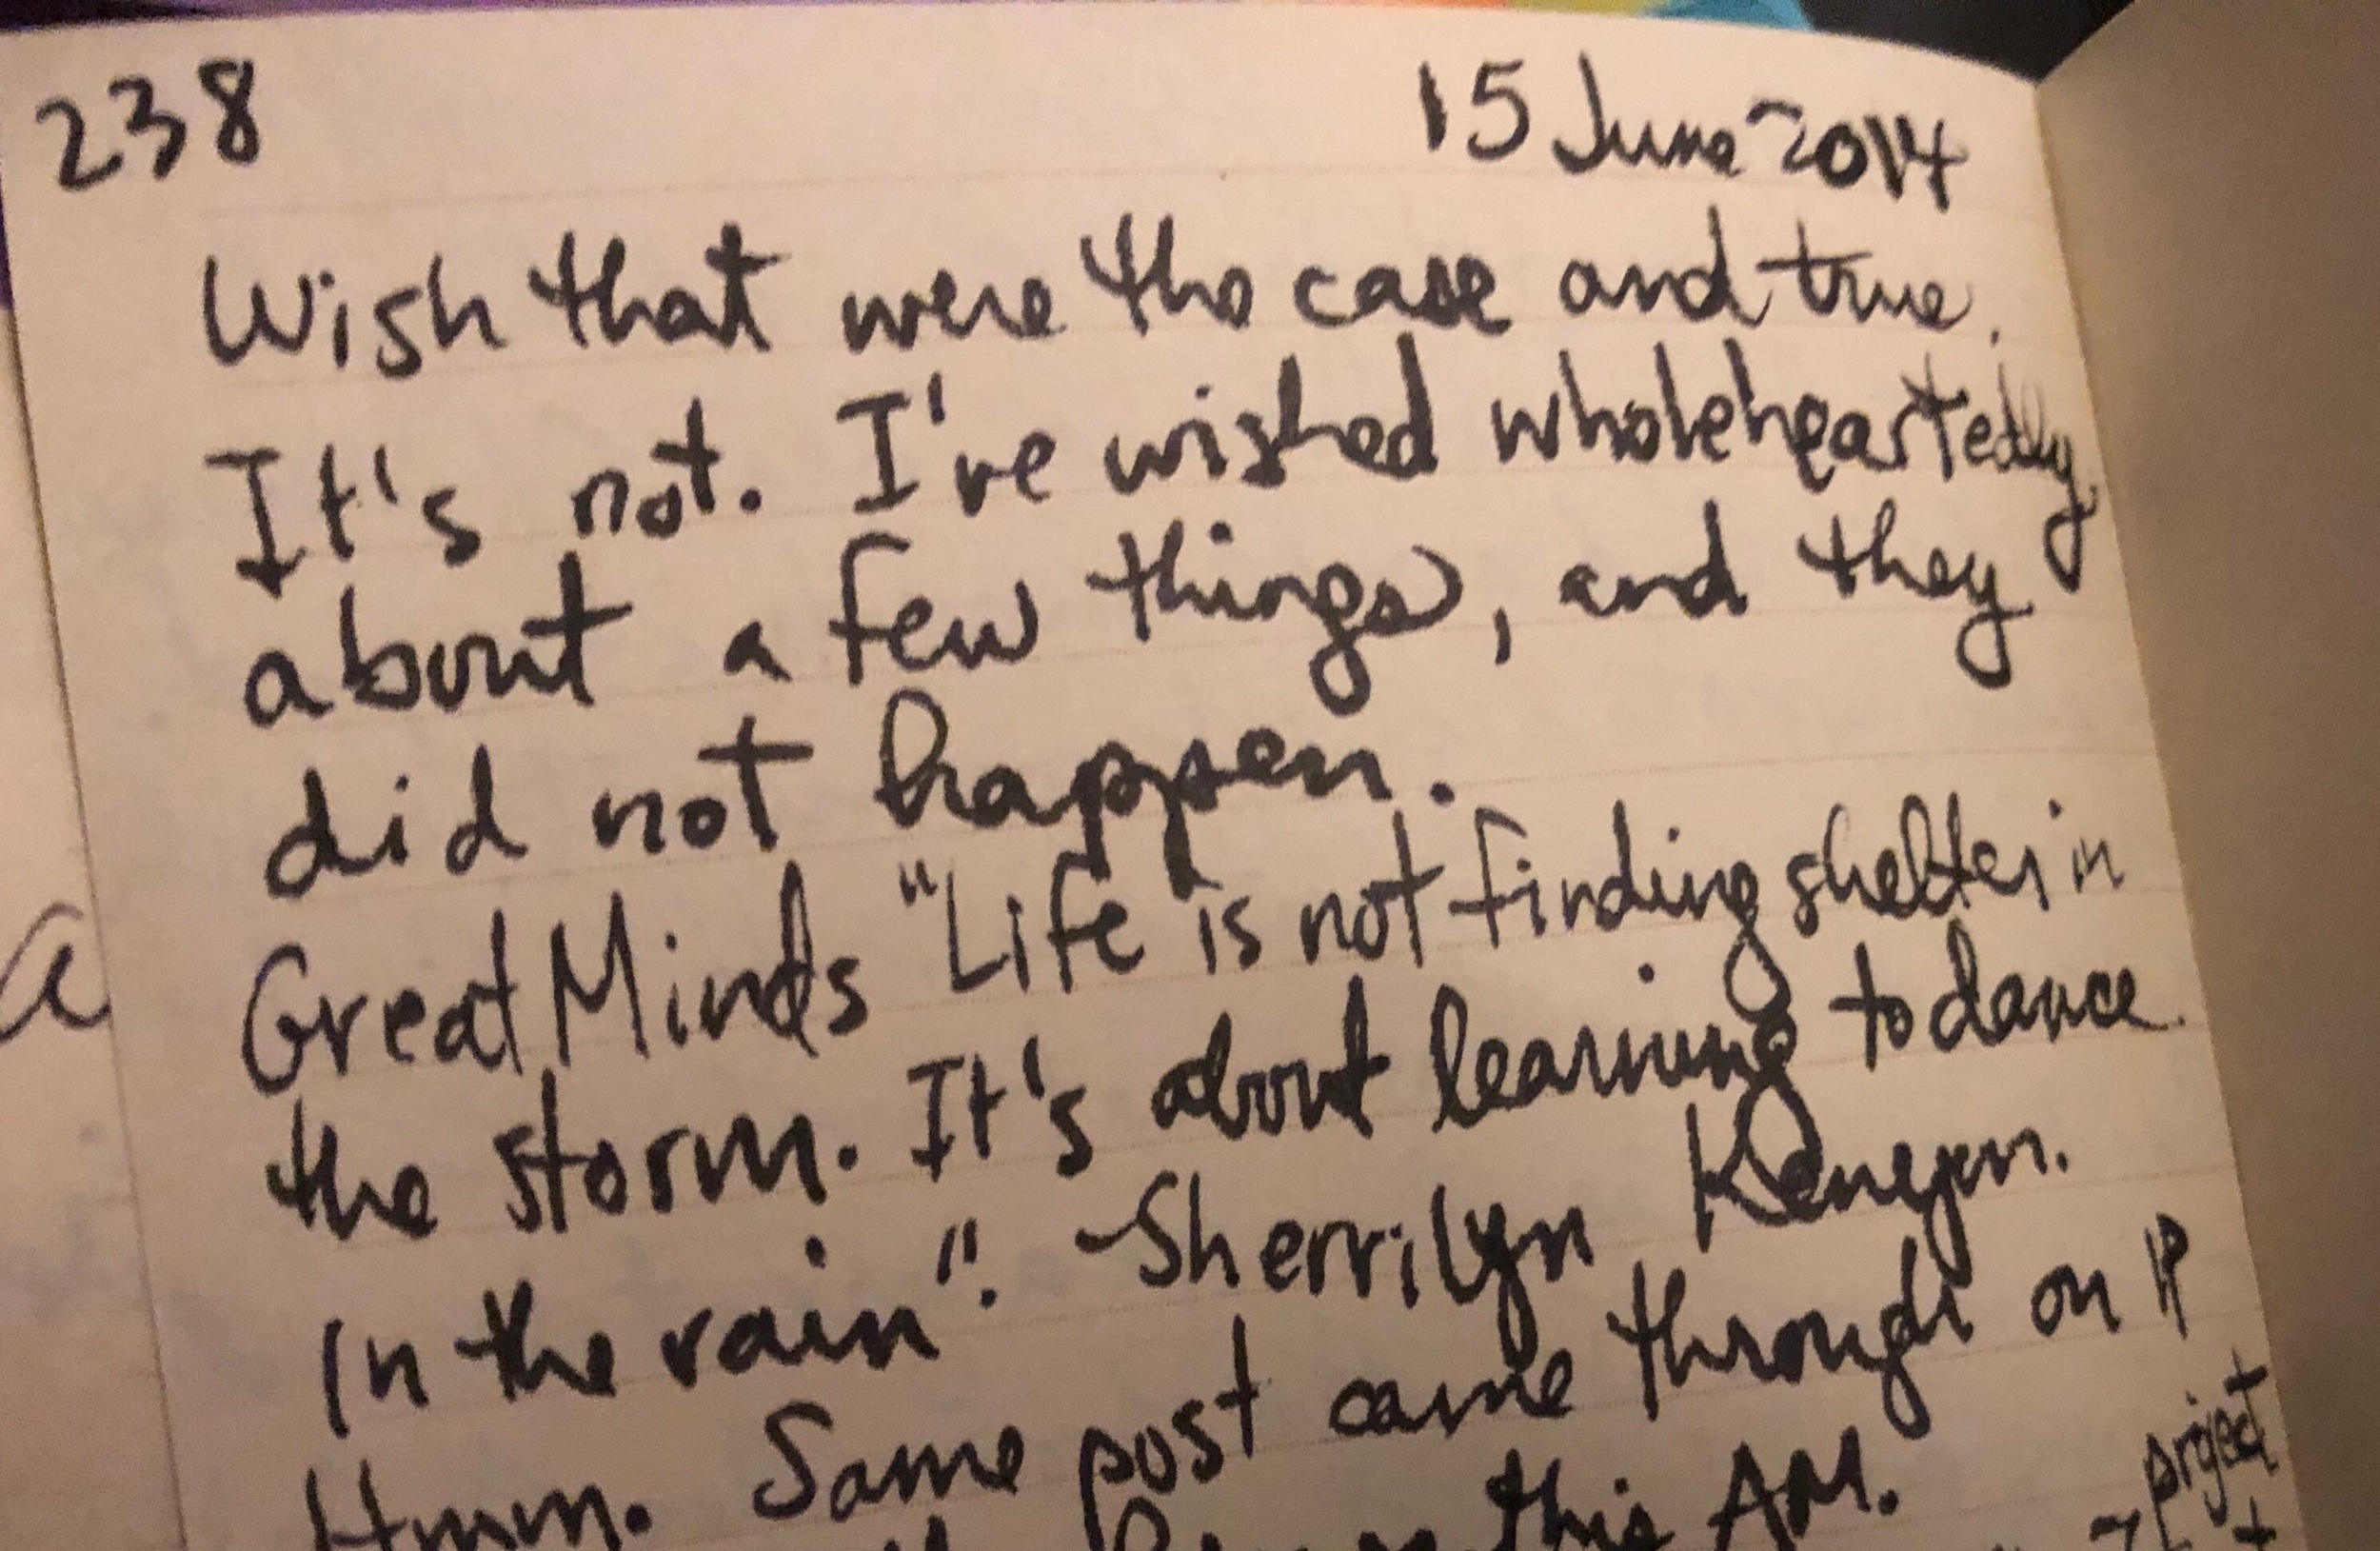 238 15 June 2014
Wish that were the case and true.
It's not. I've wished wholeheartedly
about a few things, and they
did not happen.
Great Minds "Life is not finding shelter in
the storm. It's about learning to dance
in the rain". - Sherrilyn Kenyon.
Hmm. Same post came through on IP
this AM.
project
a